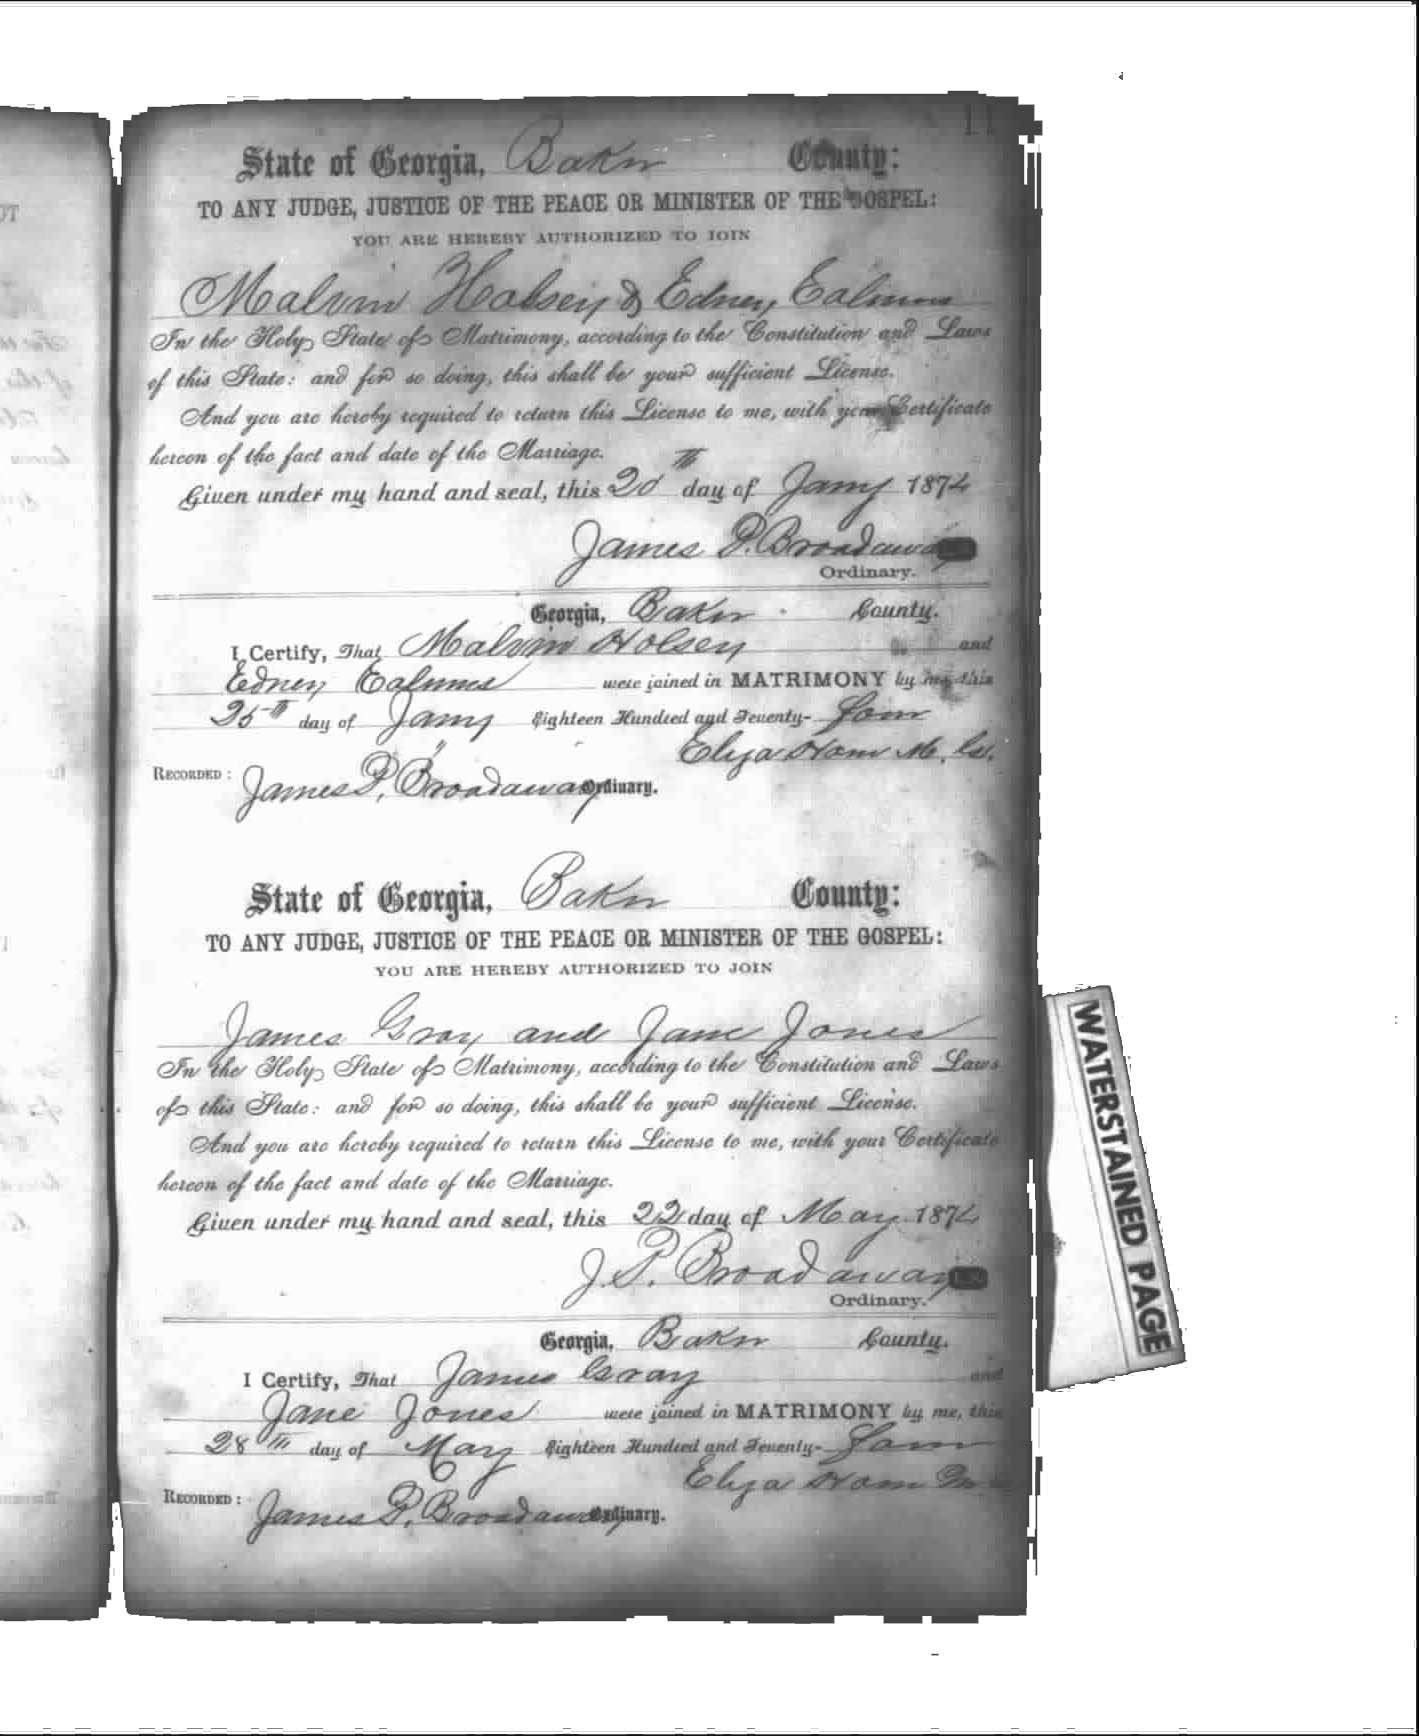 11
State of Georgia, Baker County:
TO ANY JUDGE, JUSTICE OF THE PEACE OR MINISTER OF THE GOSPEL:
YOU ARE HEREBY AUTHORIZED TO JOIN
Malvin Holsey & Edney Ealums
In the Holy State of Matrimony, according to the Constitution and Laws
of this State: and for so doing, this shall be your sufficient License.
And you are hereby required to return this License to me, with your Certificate
hereon of the fact and date of the Marriage.
Given under my hand and seal, this 20th day of Jany 1874
James P. Broadaway
Ordinary.
Georgia, Baker County.
I Certify, That Malvin Holsey and
Edney Ealums were joined in MATRIMONY by me, this
25th day of Jany Eighteen Hundred and Seventy- Four
Elija Ham M. G.
RECORDED: James P. Broadaway Ordinary.
State of Georgia, Baker County:
TO ANY JUDGE, JUSTICE OF THE PEACE OR MINISTER OF THE GOSPEL:
YOU ARE HEREBY AUTHORIZED TO JOIN
James Gray and Jane Jones
In the Holy State of Matrimony, according to the Constitution and Laws
of this State: and for so doing, this shall be your sufficient License.
And you are hereby required to return this License to me, with your Certificate
hereon of the fact and date of the Marriage.
Given under my hand and seal, this 22 day of May 1874
J. P. Broadaway L.S.
Ordinary.
Georgia, Baker County.
I Certify, That James Gray and
Jane Jones were joined in MATRIMONY by me, this
28th day of May Eighteen Hundred and Seventy- Four
Elija Ham M
RECORDED: James P. Broadaway Ordinary.
WATERSTAINED PAGE